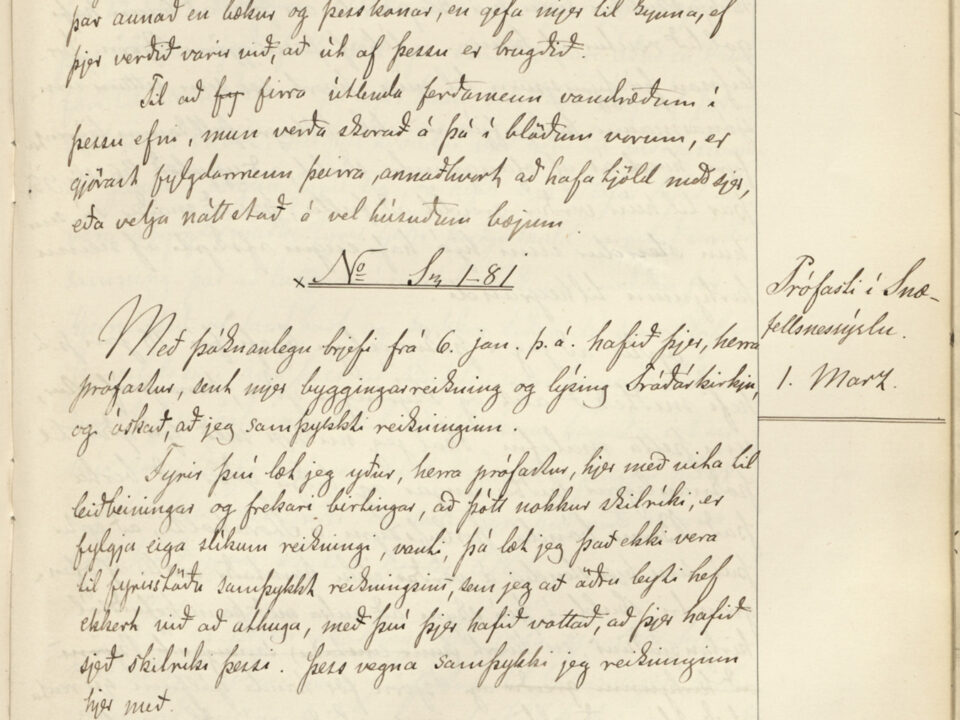 þar annað en lækur og þess konar, en gefa mjer til kynna, ef
þjer verðið varir við, að út af þessu er brugðið.
Til að fy firra útlenda ferðamenn vandræðum í
þessu efni, mun verða skorað á þá í blöðum vorum, er
gjörast fylgdarmenn þeirra, annaðhvort, að hafa tjöld með sjer,
eða velja náttstað á vel húsuðum bæjum.
x No Sn 1-81
Með þóknanlegu brjefi frá 6. jan. þ. á. hafið þjer, herra
prófastur, sent mjer byggingarreikning og lýsing Fróðárkirkju,
og óskað, að jeg samþykkti reikninginn.
Fyrir því læt jeg yður, herra prófastur, hjer með vita til
leiðbeiningar og frekari birtingar, að þótt nokkur skilríki, er
fylgja eiga slíkum reikningi, vanti, þá læt jeg það ekki vera
til fyrirstöðu samþykkt reikningsins, sem jeg að öðru leyti hef
ekkert við að athuga, með því þjer hafið vottað, að þjer hafið
sjeð skilríki þessi. Þess vegna samþykki jeg reikninginn
hjer með.
Prófasti í Snæ-
fellsnessýslu.
1. Marz.